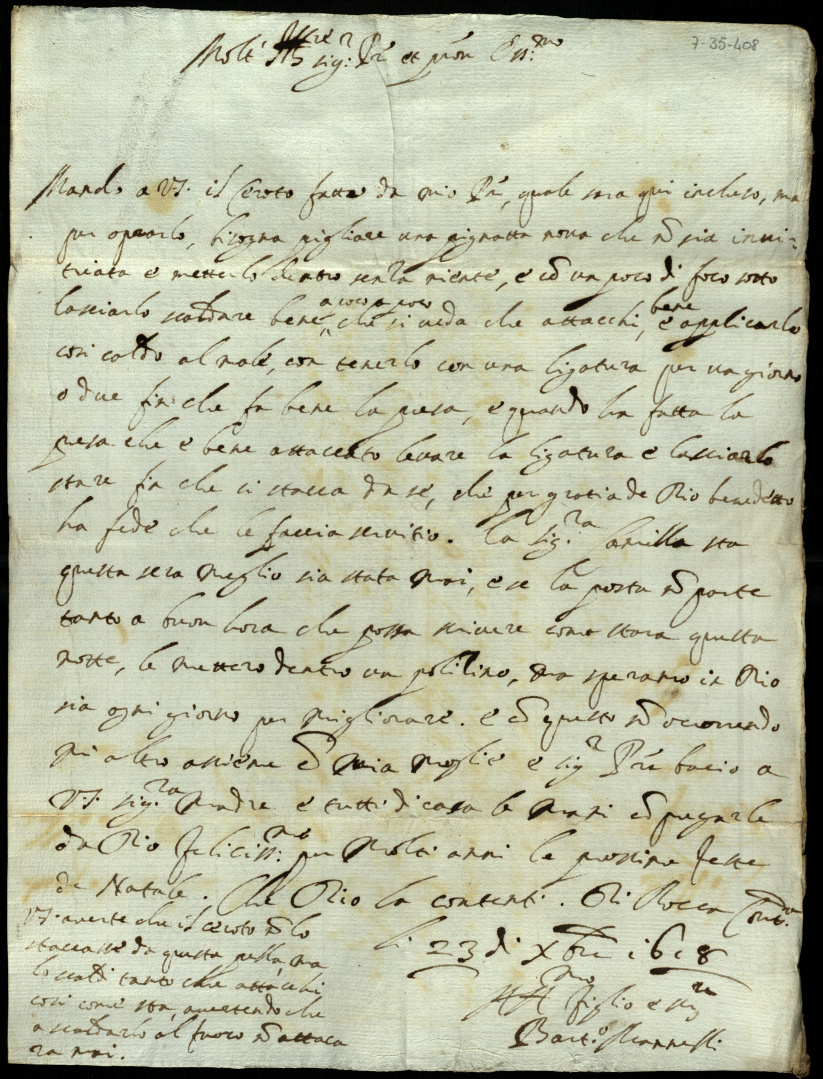 7-35-408
Molt' Ill.re sig.r Pre et pron Oss.mo
Mando a VS. il Ceroto fatto da mio Pre, quale sara qui incluso, ma
per oprarlo, bisogna pigliare una pignatta nova che nō sia invi-
triata e metterlo dentro senza niente, e cō un poco di foco sotto
lasciarlo scaldare bene a poco a poco, che si veda che attacchi, bene e applicarlo
cosi caldo al male, con tenerlo con una ligatura per un giorno
o due fin che fa bene la presa, e quando ha fatta la
presa che e bene attaccato levare la ligatura e lasciarlo
stare fin che si stacca da se, che per gratia de Dio benedetto
ha fede che le faccia servitio. La sig.ra Camilla sta
questa sera meglio sia stata mai, e se la posta nō parte
tanto a buon hora che possa scrivere come stara questa
notte, le mettero dentro un polilino, ma speramo in Dio
sia ogni giorno per migliorare. e cō questo nō occorrendo
mi altro assieme cō mia moglie e sig.r Pre bacio a
VS. sig.ra Madre e tutti di casa le mani cō pregarle
da Dio feliciss.me per molti anni le prossime feste
de Natale. Che Dio la contenti. Di Rocca Cont.a
li 23 di Xbre 1618
VS. averte che il ceroto nō lo
staccasse da questa pella ma
lo scaldi tanto che attacchi
cosi come sta, avertendo che
a scaldarlo al fuoco nō attaca
ra mai.
Aff.mo figlio e ser.re
Bart.o Mannelli